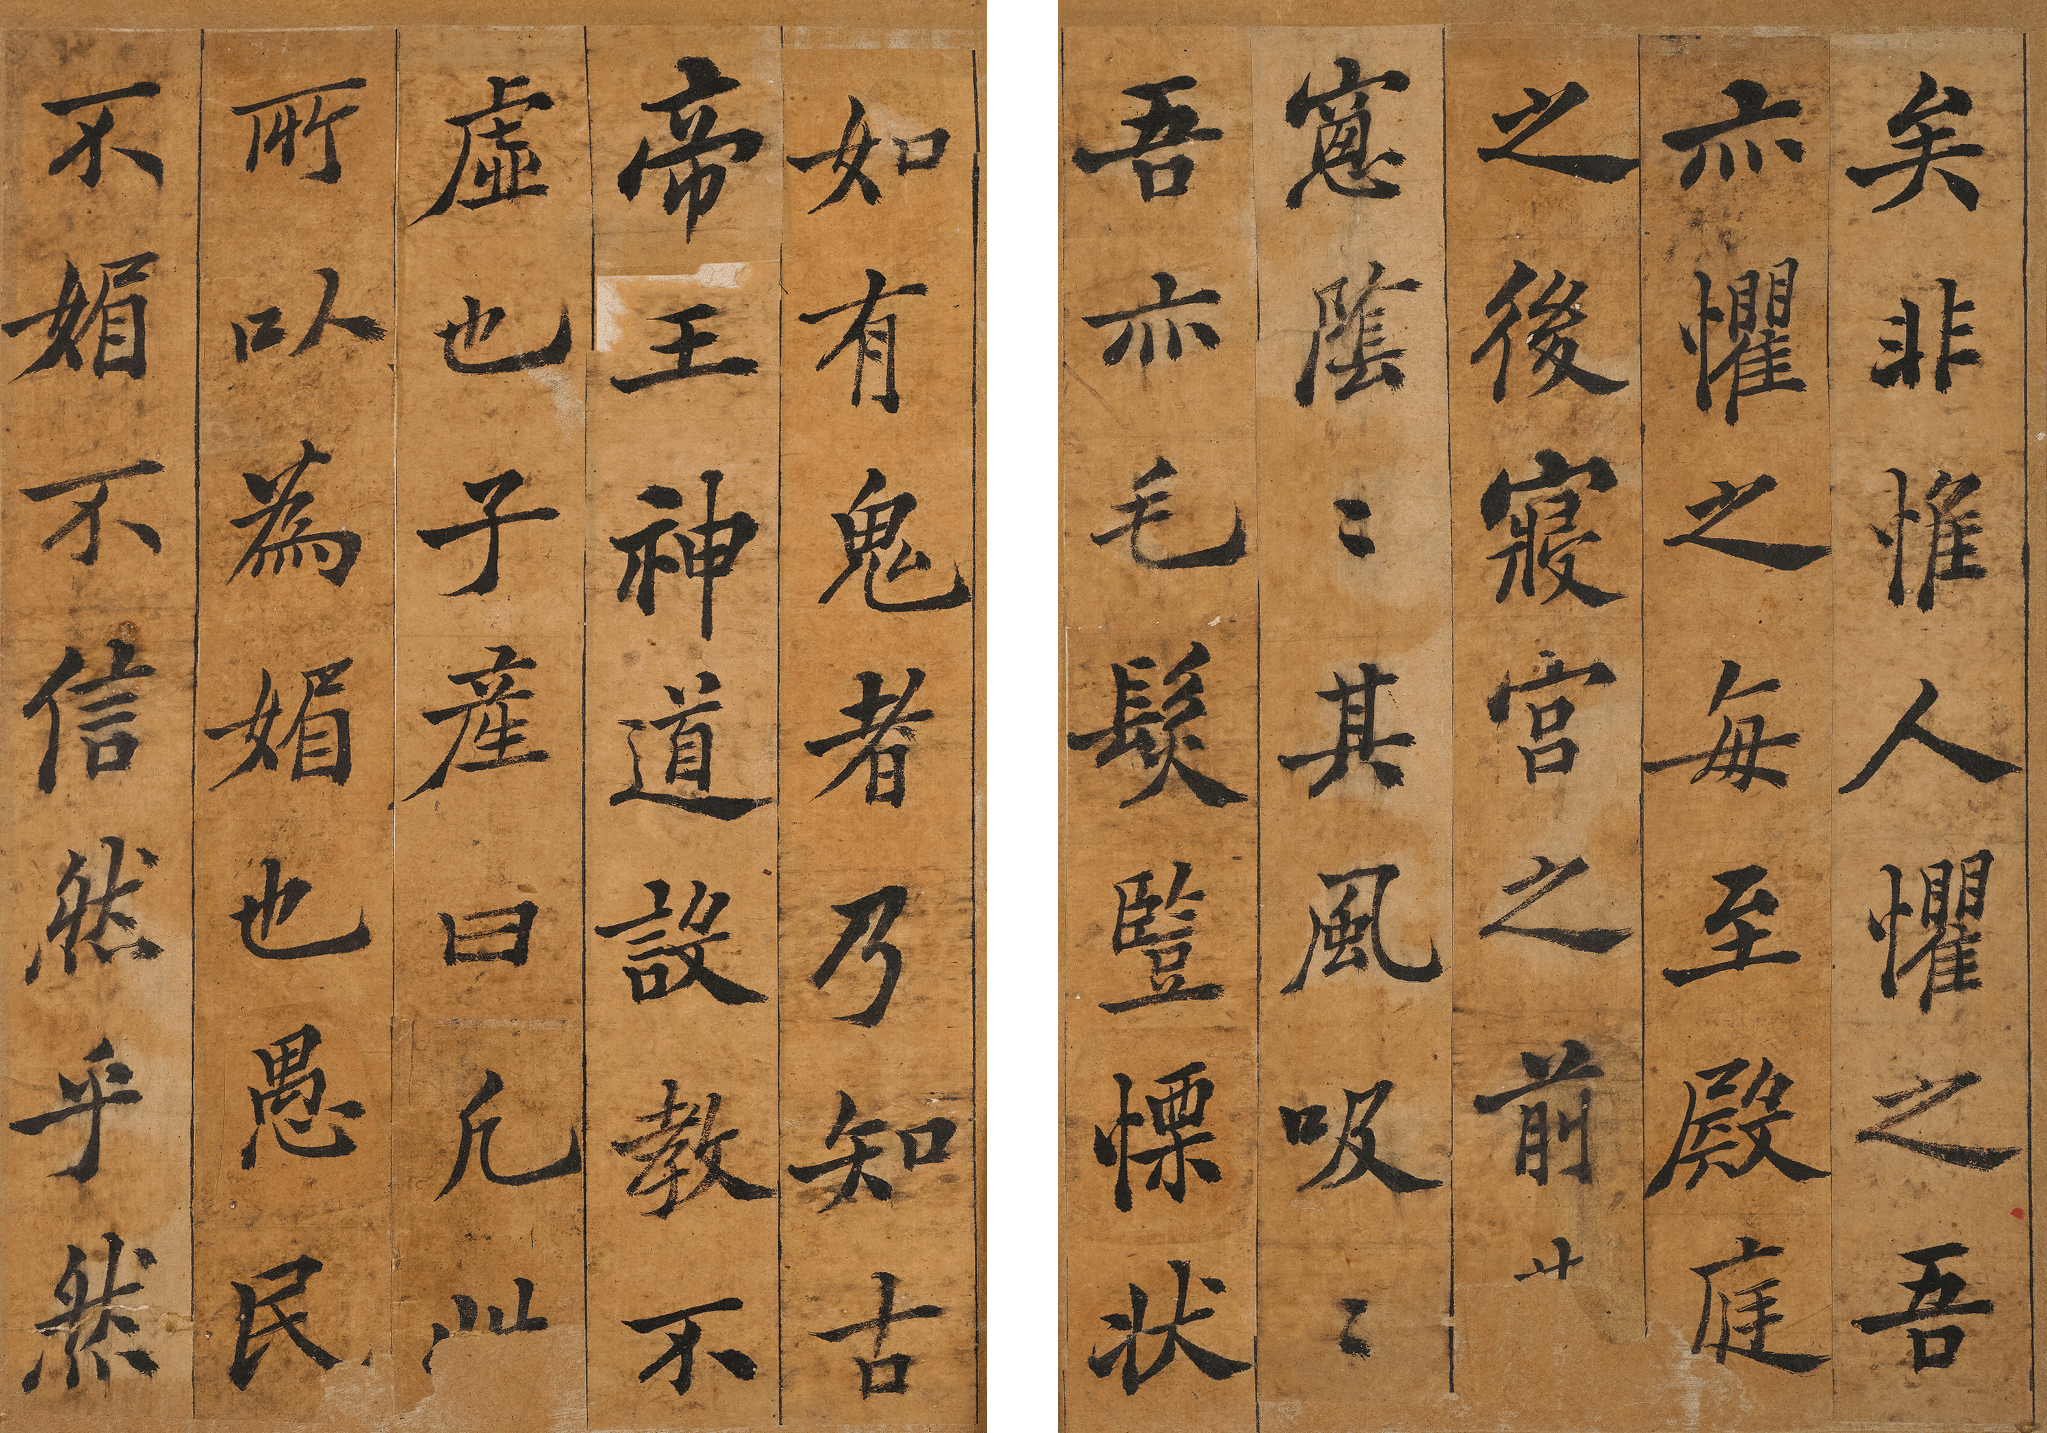 矣非惟人懼之吾
亦懼之每至殿庭
之後寢宮之前
窻陰〻其風吸〻
吾亦毛髮豎慄狀
如有鬼者乃知古
帝王神道設教不
虛也子產曰凡
所以為媚也愚民
不媚不信然乎然